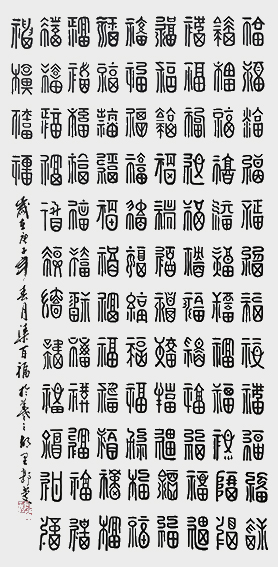 福福福福福福福福福福福福
福福福福福福福福福福福福
福福福福福福福福福福福福
福福福福福福福福福福福福
福福福福福福福福福福福福
福福福福福福福福福福福福
福福福福福福福福福福福福
福福福福福福福福福福福福
福福福福
歲在庚子年春月集百福於羲之故里